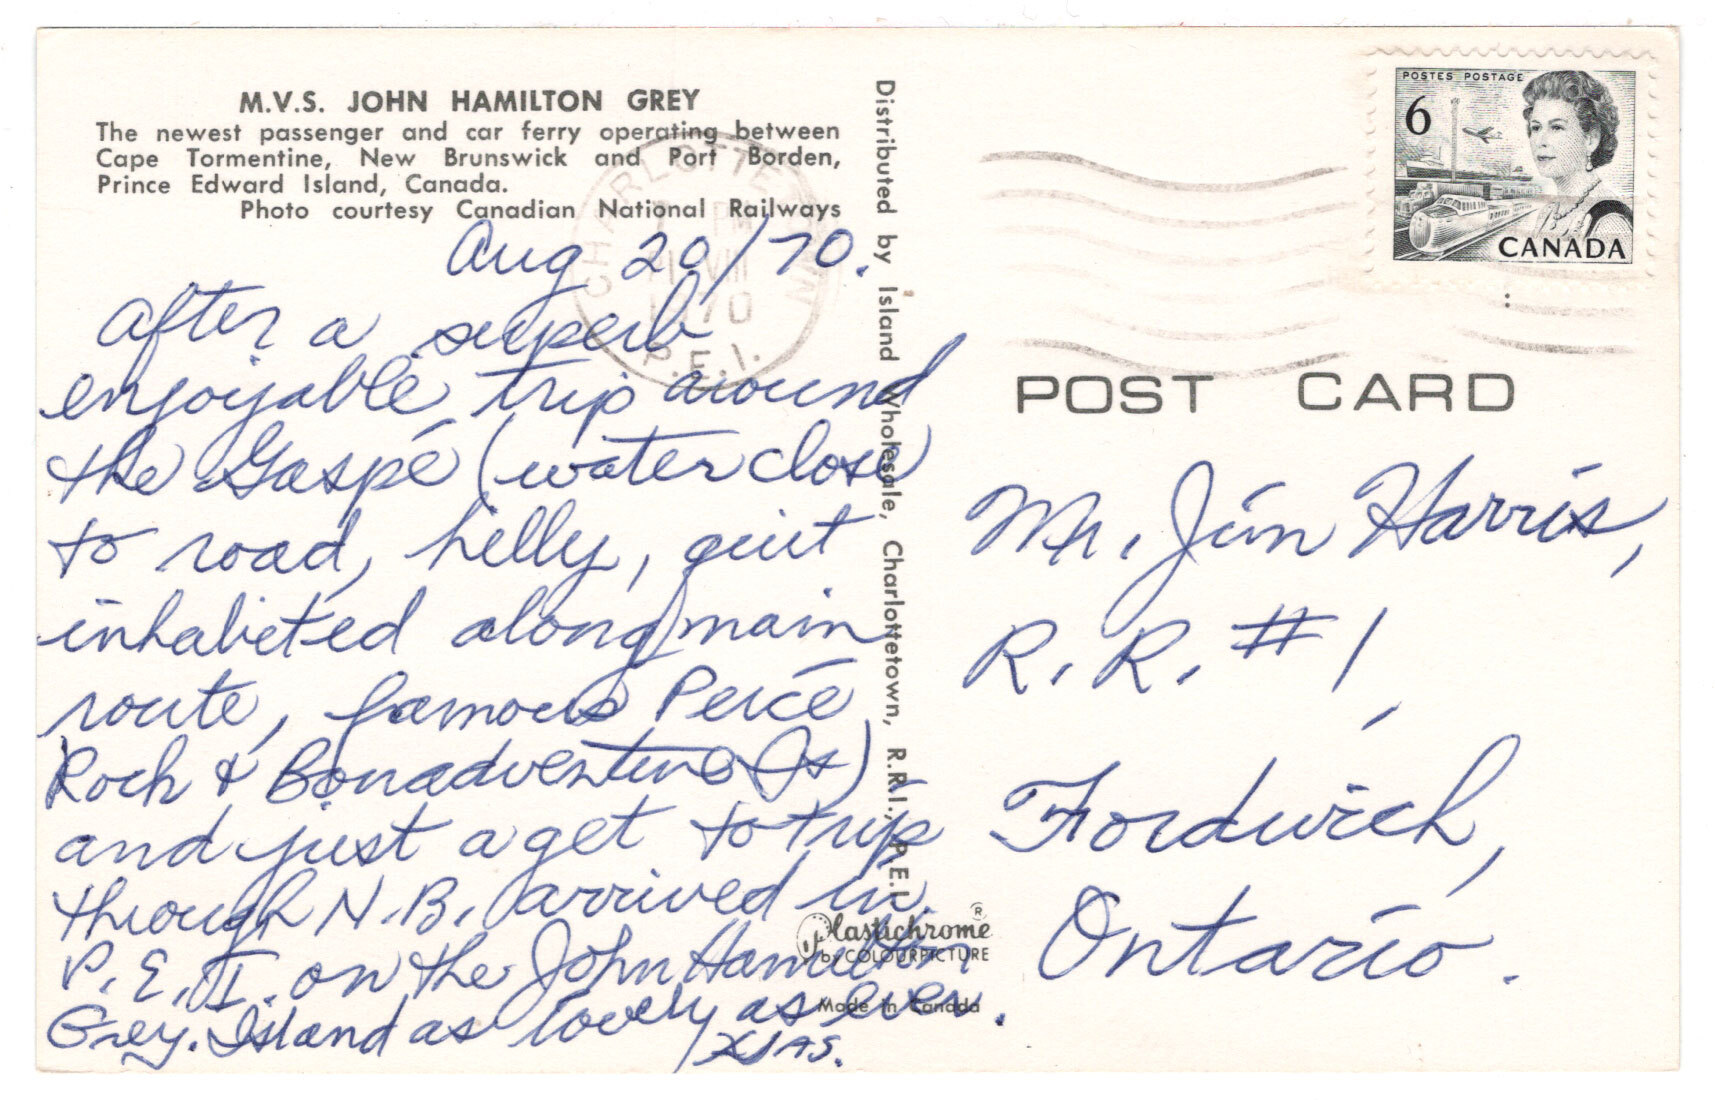 M.V.S. JOHN HAMILTON GREY
The newest passenger and car ferry operating between
Cape Tormentine, New Brunswick and Port Borden,
Prince Edward Island, Canada.
Photo courtesy Canadian National Railways
Aug 20/70.
After a superb
enjoyable trip around
the Gaspé (water close
to road, hilly, quit
inhabited along main
route, famous Percé
Rock & Bonadventure Is)
and just a get to trip
through N.B. arrived in
P.E.I. on the John Hamilton
Grey. Island as lovely as ever.
Distributed by Island Wholesale, Charlottetown, R.R.1., P.E.I.
Plastichrome ®
by COLOURPICTURE
Made in Canada
CHARLOTTETOWN
PM
VIII
1970
P.E.I.
POSTES POSTAGE
6
CANADA
POST CARD
Mr. Jim Harris,
R.R. #1,
Fordwich,
Ontario.